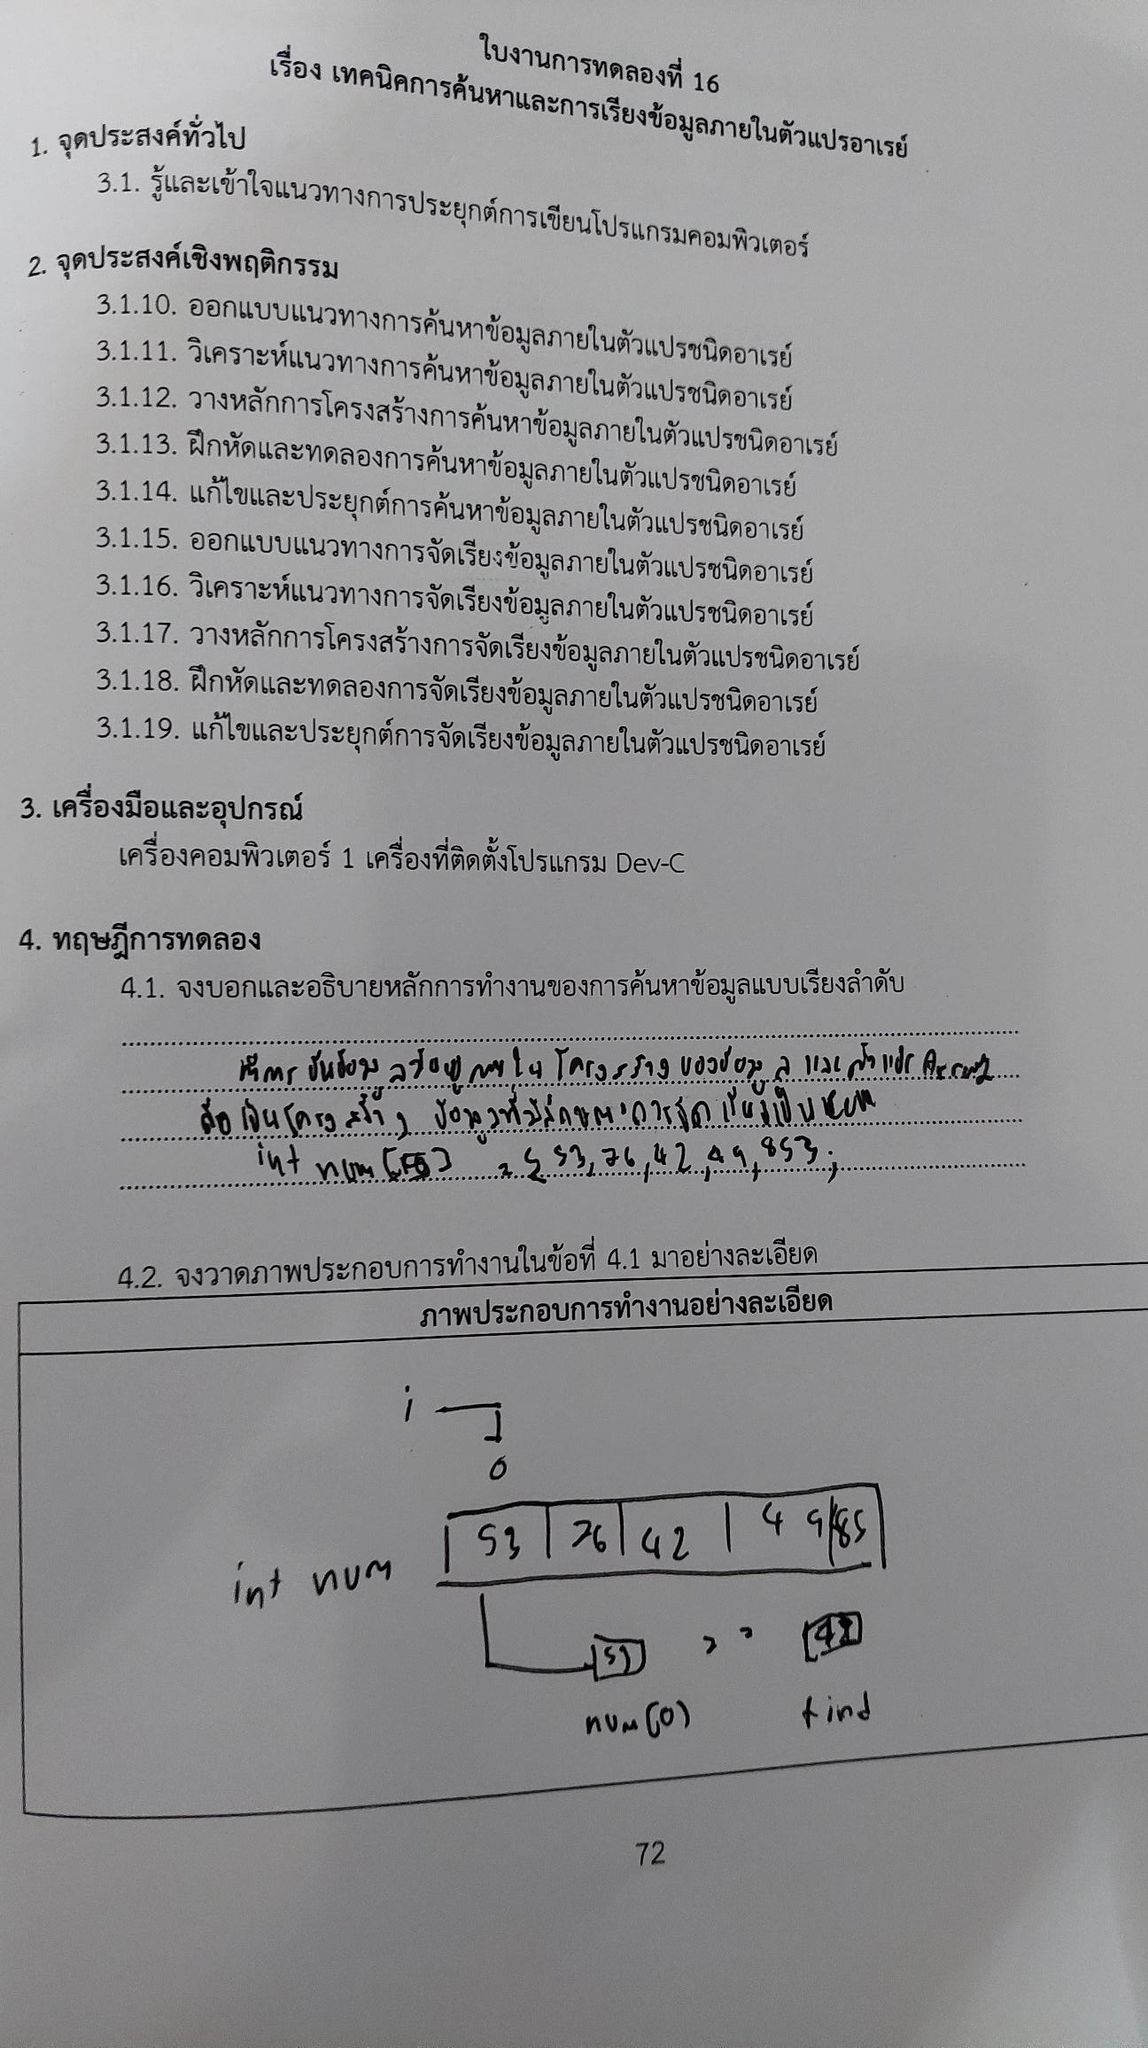 ใบงานการทดลองที่ 16
เรื่อง เทคนิคการค้นหาและการเรียงข้อมูลภายในตัวแปรอาเรย์
1. จุดประสงค์ทั่วไป
3.1. รู้และเข้าใจแนวทางการประยุกต์การเขียนโปรแกรมคอมพิวเตอร์
2. จุดประสงค์เชิงพฤติกรรม
3.1.10. ออกแบบแนวทางการค้นหาข้อมูลภายในตัวแปรชนิดอาเรย์
3.1.11. วิเคราะห์แนวทางการค้นหาข้อมูลภายในตัวแปรชนิดอาเรย์
3.1.12. วางหลักการโครงสร้างการค้นหาข้อมูลภายในตัวแปรชนิดอาเรย์
3.1.13. ฝึกหัดและทดลองการค้นหาข้อมูลภายในตัวแปรชนิดอาเรย์
3.1.14. แก้ไขและประยุกต์การค้นหาข้อมูลภายในตัวแปรชนิดอาเรย์
3.1.15. ออกแบบแนวทางการจัดเรียงข้อมูลภายในตัวแปรชนิดอาเรย์
3.1.16. วิเคราะห์แนวทางการจัดเรียงข้อมูลภายในตัวแปรชนิดอาเรย์
3.1.17. วางหลักการโครงสร้างการจัดเรียงข้อมูลภายในตัวแปรชนิดอาเรย์
3.1.18. ฝึกหัดและทดลองการจัดเรียงข้อมูลภายในตัวแปรชนิดอาเรย์
3.1.19. แก้ไขและประยุกต์การจัดเรียงข้อมูลภายในตัวแปรชนิดอาเรย์
3. เครื่องมือและอุปกรณ์
เครื่องคอมพิวเตอร์ 1 เครื่องที่ติดตั้งโปรแกรม Dev-C
4. ทฤษฎีการทดลอง
4.1. จงบอกและอธิบายหลักการทำงานของการค้นหาข้อมูลแบบเรียงลำดับ
ภายใน โครงสร้าง ของข้อมูล และตัวแปร Array
คือ เป็นโครงสร้าง ข้อมูลที่มีลักษณะการจัดเรียงเป็น
int num = { 53, 76, 42, 49, 85 };
4.2. จงวาดภาพประกอบการทำงานในข้อที่ 4.1 มาอย่างละเอียด
ภาพประกอบการทำงานอย่างละเอียด
i
0
int num 53 76 42 49 85
53 = =
num(0) find
72